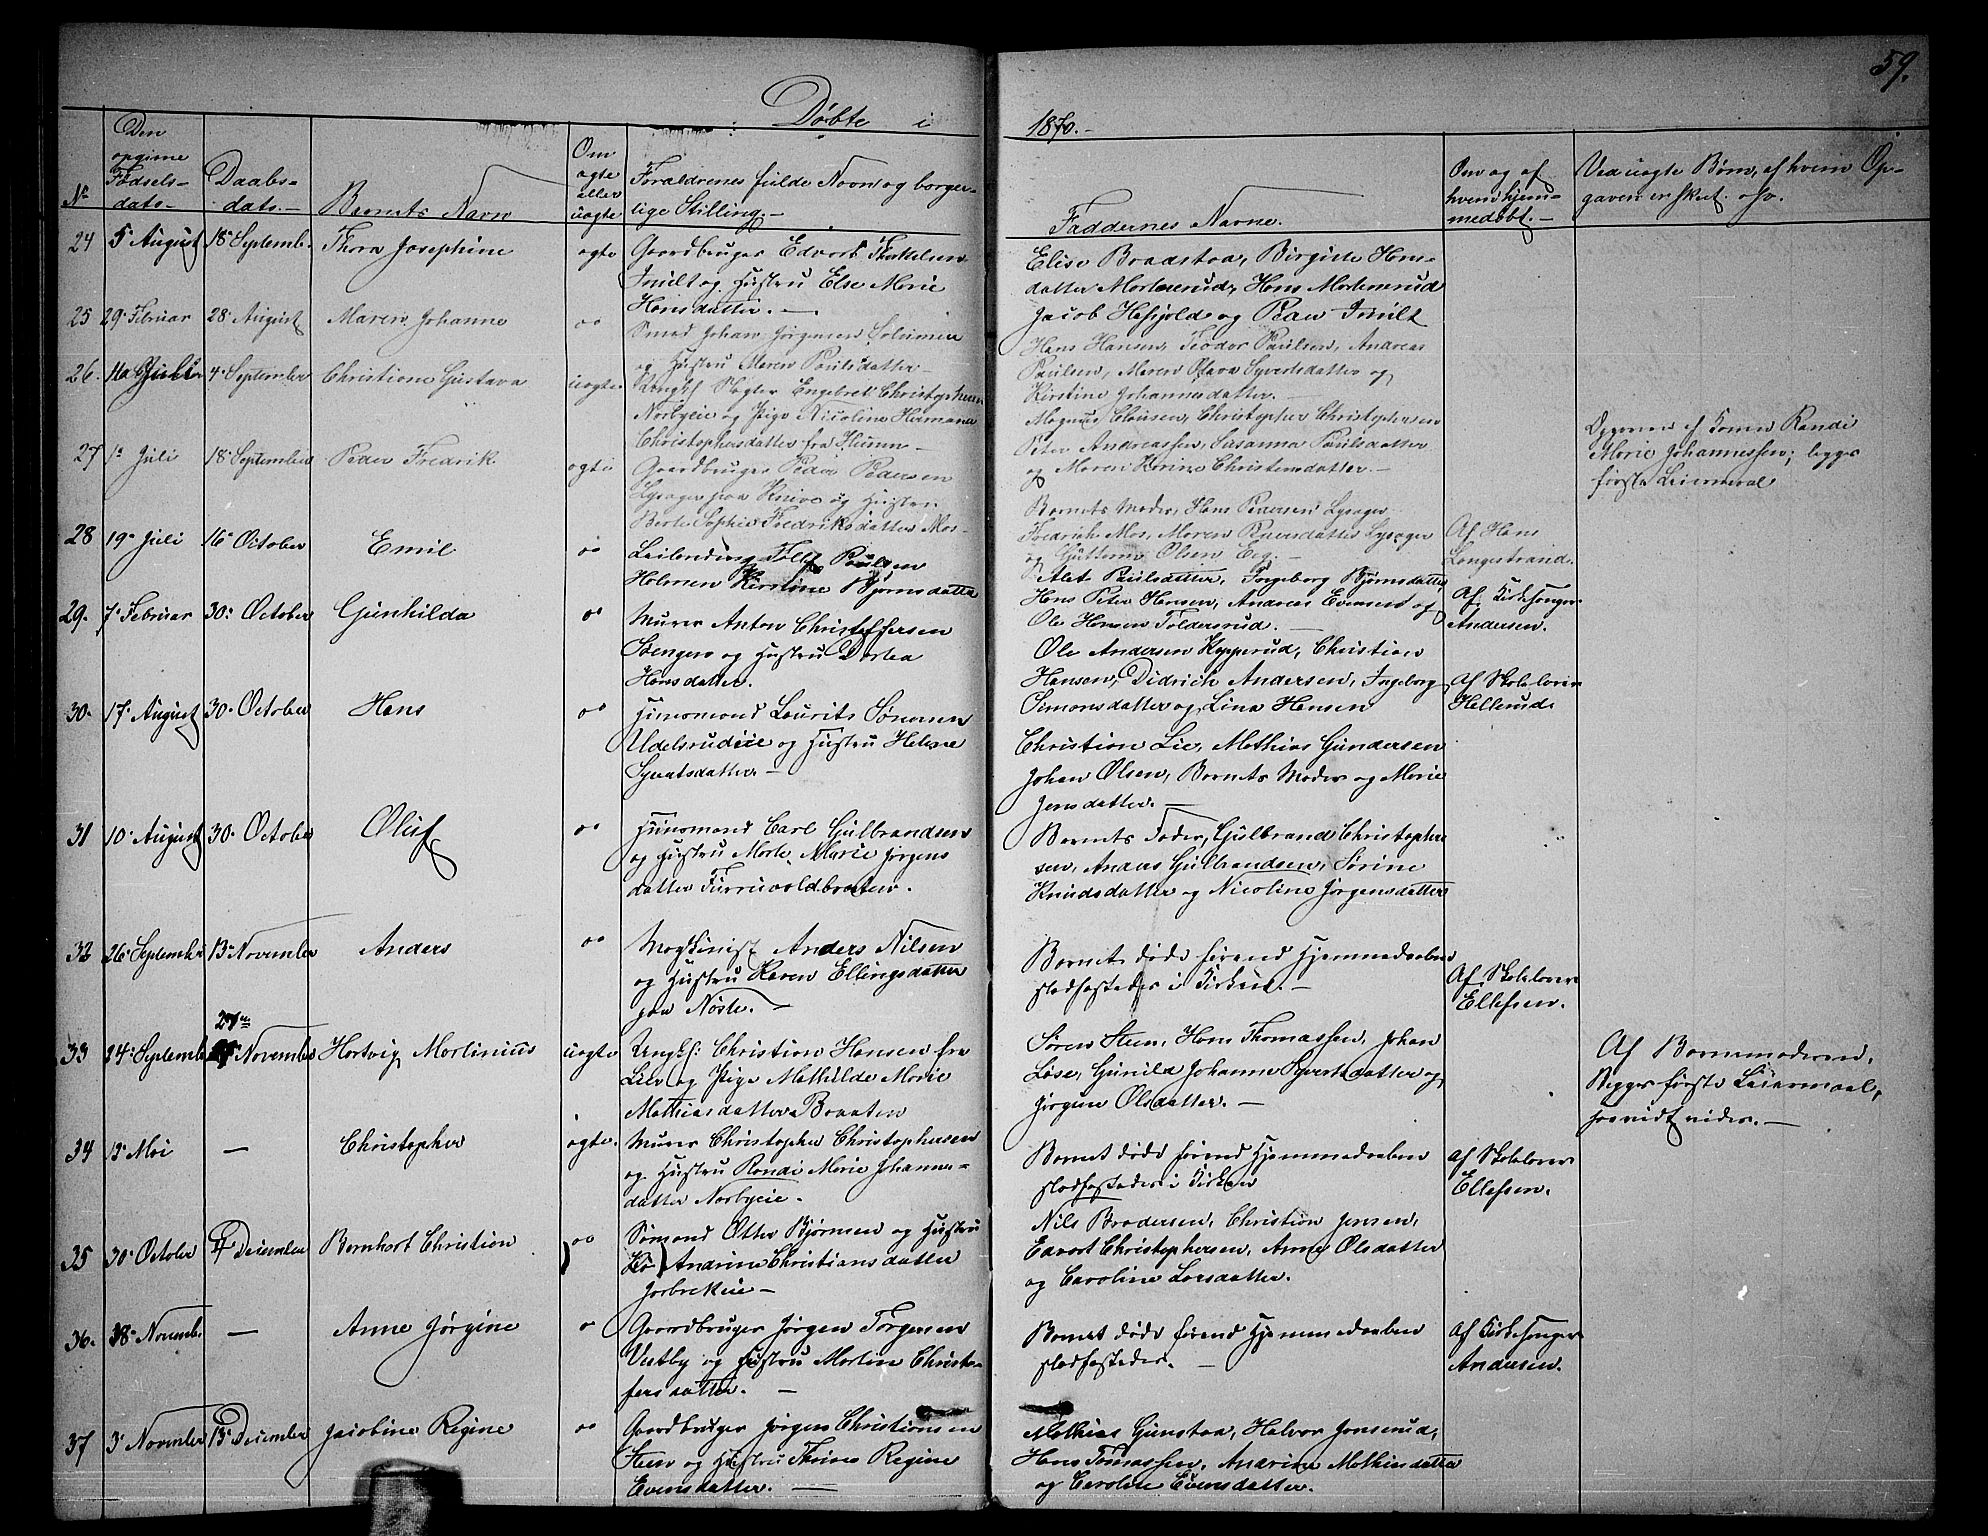 59.
Døbte i 1870.
No
Den opgivne Fødsels-dato
Daabs-dato.
Barnets Navn
Om ægte eller uægte
Forældrenes fulde Navn og borgerlige Stilling.
Faddernes Navne.
Om og af hvem hjemmedøbt.
Ved uægte Børn, af hvem Opgaven er skeet. osv.
24 5 August 18 Septemb. Thora Josephine ægte Gaardbruger Edvart Thorkelsen
Hustru Else Marie
Hansdatter.
Elise Braastaa, Birgitte Hans-
datter Mortenrud, Hans Mortenrud
Jacob Hafsjold og Peau
25 29 Februar 28 August Maren Johanne oo Smed Johan Jørgensen
og Hustru Maren Paulsdatter
Hans Hansen, Teodor Paulsen, Andreas
Paulsen, Maren Olava Syvertsdatter og
Kirstine Johannesdatter.
26. 4 September Christiane Gustava uægte Ungkf. Slagter Engebret Christophersen
Norbyeie og Pige Nicoline Hermana
Christophersdatter fra Hurum
Magnus Clausen, Christopher Christophersen
Peter Andreassen, Susanna Paulsdatter
og Maren Karine Christensdatter.
Opgaven af Konen Randi
Marie Johannessen; begges
første Leiermaal
27 1 Juli 18 September Peder Fredrik ægte Gaardbruger Peder Pedersen
Lysager paa Knive og Hustru
Berte Sophie Fredriksdatter Mos-
Barnets Moder, Hans Pedersen Lysager
Fredrich Mos, Maren Pedersdatter Lysager
og Guttorm Olsen Eeg.
Af Hans
Langestrand.
28 19 Juli 16 October Emil oo Leilending Paulsen
Holmen Kirstine Bjørnsdatter
Alet Paulsdatter, Ingeborg Bjørnsdatter
Hans Peter Hansen, Andreas Evensen og
Ole Hansen Toldersrud.
Af Kirkesanger
Andersen.
29. 7 Februar 30 October Gunhilda oo Murer Anton Christoffersen
Stengen og Hustru Dortea
Hansdatter.
Ole Andersen Kopperud, Christian
Hansen, Didrich Andersen, Ingeborg
Simonsdatter og Lina Hansen
Af Skolelærer
Hellerud.
30. 17 August 30 October Hans oo Huusmand Laurits Sørensen
Udelsrudeie og Hustru Helene
Syvertsdatter
Christian Lie, Mathias Gundersen
Johan Olsen, Barnets Moder og Marie
Jensdatter.
31 10 August 30 October Oluf oo Huusmand Carl Gulbrandsen
og Hustru Marte Marie Jørgens
datter Furruvoldbraaten.
Barnets Fader, Gulbrand Christopher
sen, Anders Gulbrandsen, Sørine
Knudsdatter og Nicoline Jørgensdatter
32 26 September 13 November Anders oo Maskinist Anders Nilsen
og Hustru Karen Ellingsdatter
paa Nøste.
Barnet døde førend Hjemmedaaben
stadfæstedes i Kirken.
Af Skolelærer
Ellefsen.
33 24 Septemb. 27 November Hartvig Martinius uægte Ungkf: Christian Hansen fra
Lier og Pige Mathilde Marie
Mathiasdatter Braaten
Søren Steen, Hans Thomassen, Johan
Løse, Gunild Johanne Syvertsdatter og
Jørgine Olsdatter.
Af Barnemoderen,
Begges første Leiermaal,
saavidt vides.
34 13 Mai — Christopher ægte. Murer Christopher Christophersen
og Hustru Randi Marie Johannes-
datter Norbyeie.
Barnet døde førend Hjemmedaaben
stadfæstedes i Kirken
Af Skolelærer
Ellefsen.
35 30 October 4 December Bernhart Christian oo Sømand Otter Bjørnsen og Hustru
Andrine Christiansdatter
Nils Brodersen, Christian Jensen,
Edvart Christophersen, Anne Olsdatter
og Caroline Larsdatter.
36. 18 Novemb. — Anne Jørgine o Gaardbruger Jørgen Torgersen
Vestby og Hustru Martin Christo-
fersdatter.
Barnet døde førend Hjemmedaaben
stadfæstedes.
Af Kirkesanger
Andersen.
37 3 November 13 December Jacobine Regine oo Gaardbruger Jørgen Christiansen
Steen og Hustru Thrine Regine
Evensdatter.
Mathias Gunstaa, Halvor Jonsrud,
Hans Tomassen, Andrine Mathisdatter
og Caroline Evensdatter.